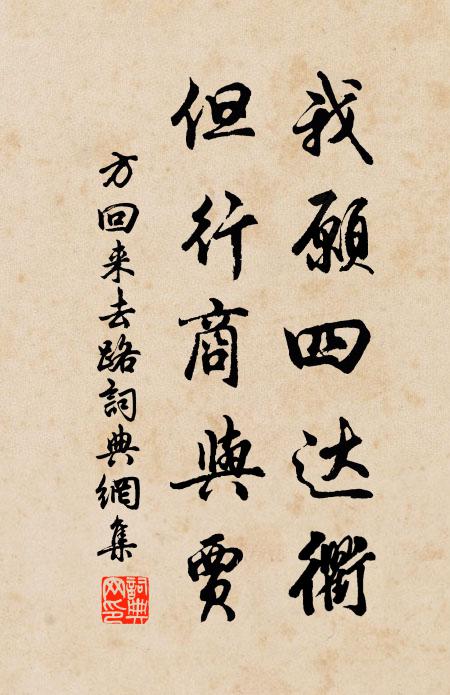 我願四达衢
但行商與賈
方回来去路詞典網集
詞典网印